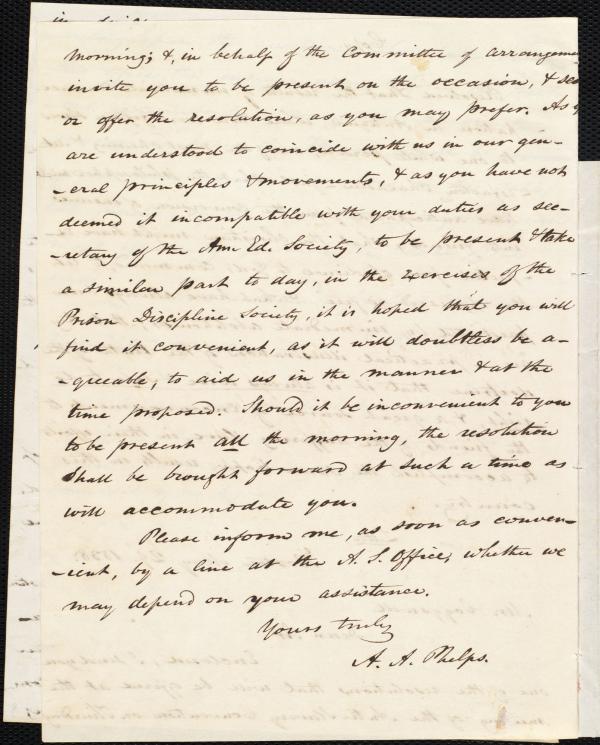 morning; &, in behalf of the Committee of arrangeme
invite you to be present on the occasion, & sec
or offer the resolution, as you may prefer. As y
are understood to coincide with us in our gen-
-eral principles & movements, & as you have not
deemed it incompatible with your duties as sec-
-retary of the Am Ed. Society, to be present & take
a similar part to day, in the exercises of the
Prison Discipline Society, it is hoped that you will
find it convenient, as it will doubtless be a-
-greeable, to aid us in the manner & at the
time proposed. Should it be inconvenient to you
to be present all the morning, the resolution
shall be brought forward at such a time as
will accommodate you.
Please inform me, as soon as conven-
-ient, by a line at the A. S. Office, whether we
may depend on your assistance.
Yours truly
A. A. Phelps.